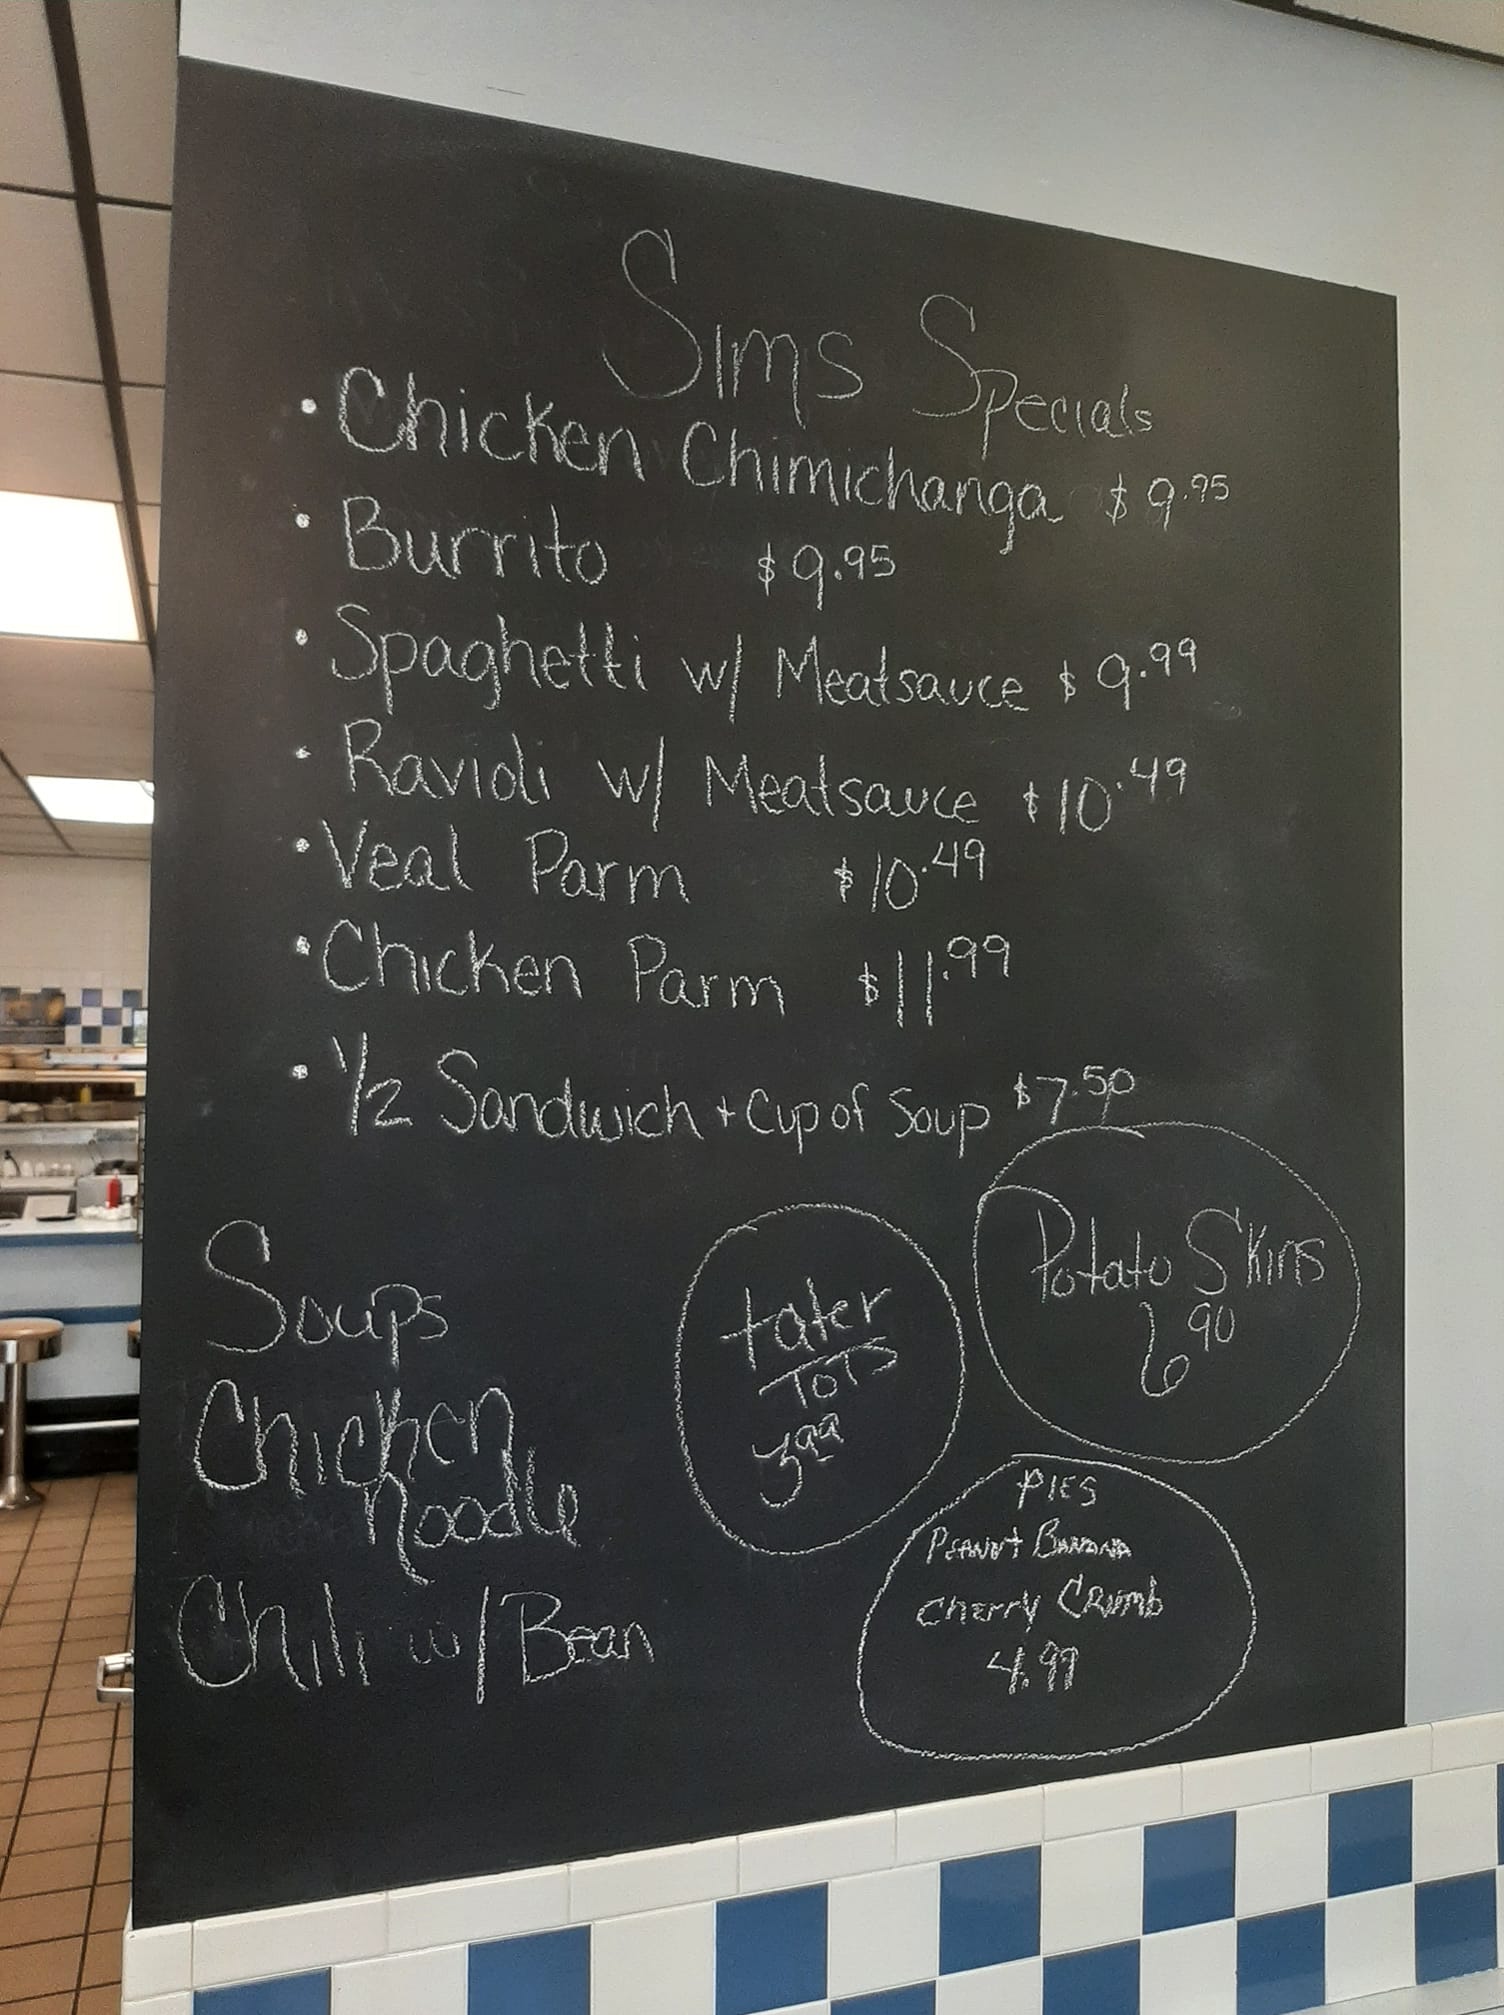 Sims Specials
• Chicken Chimichanga $9.95
• Burrito $9.95
• Spaghetti w/ Meatsauce $9.99
• Ravioli w/ Meatsauce $10.49
• Veal Parm $10.49
• Chicken Parm $11.99
• 1/2 Sandwich + Cup of Soup $7.50
Soups
Chicken
Noodle
Chili w/ Bean
tater
TOTS
3.99
Potato Skins
6.90
PIES
PEANUT BANANA
CHERRY CRUMB
4.99